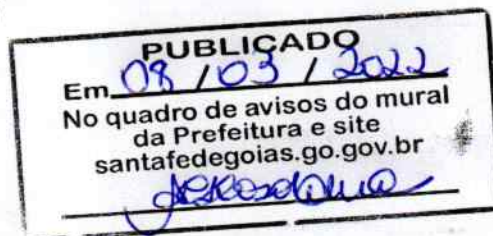 PUBLICADO
Em 08 / 03 / 2022
No quadro de avisos do mural
da Prefeitura e site
santafedegoias.go.gov.br